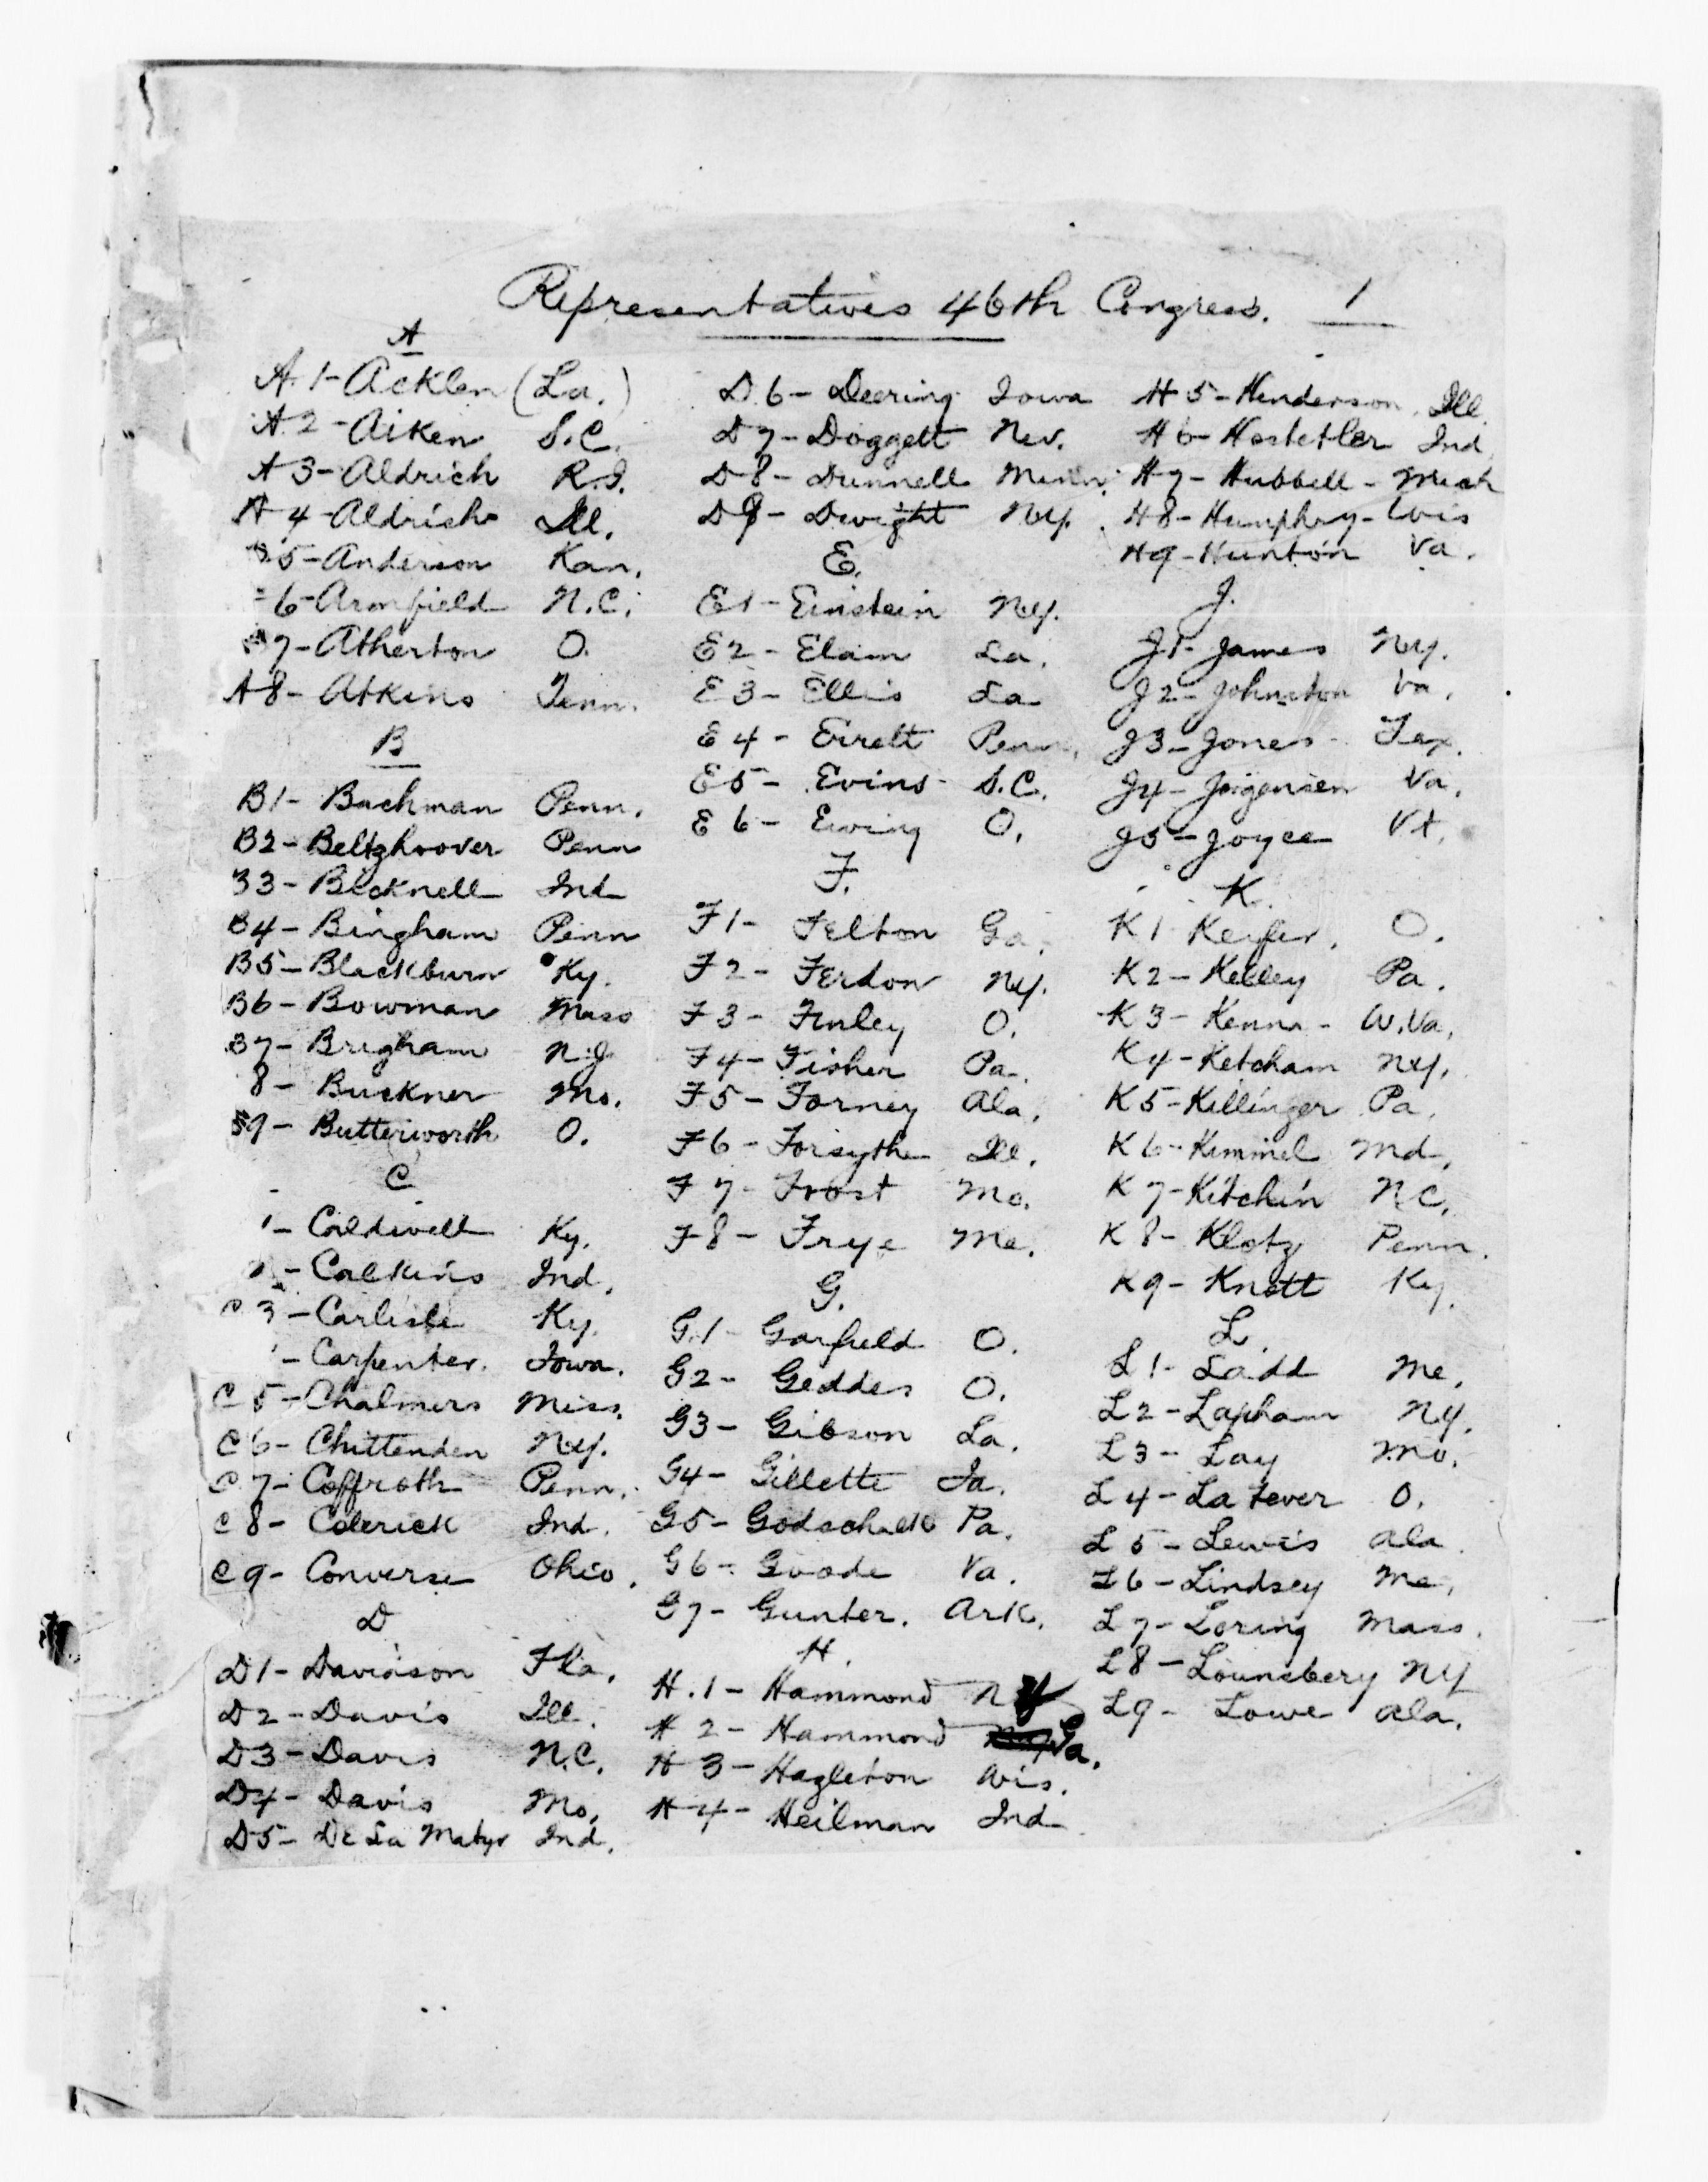 Representatives 46th Congress. 1
A
A.1- Acklen (La.)
A.2- Aiken S.C.
A3- Aldrich R.I.
A4- Aldrich Ill.
5- Anderson Kan.
6- Armfield N.C.
7- Atherton O.
A8- Atkins Tenn.
B
B1- Bachman Penn.
B2- Beltzhoover Penn
B3- Bicknell Ind
B4- Bingham Penn
B5- Blackburn Ky.
B6- Bowman Mass
B7- Brigham N.J.
8- Buckner Mo.
B9- Butterworth O.
C
1- Caldwell Ky.
- Calkins Ind.
C3- Carlisle Ky.
- Carpenter. Iowa.
C5- Chalmers Miss.
C6- Chittenden N.Y.
C7- Coffroth Penn.
C8- Colerick Ind.
C9- Converse Ohio.
D
D1- Davidson Fla.
D2- Davis Ill.
D3- Davis N.C.
D4- Davis Mo.
D5- De La Matyr Ind.
D.6- Deering Iowa
D7- Doggett Nev.
D8- Dunnell Minn.
D9- Dwight N.Y.
E.
E1- Einstein N.Y.
E2- Elam La.
E3- Ellis La
E4- Errett Penn.
E5- Evins S.C.
E6- Ewing O.
F.
F1- Felton Ga.
F2- Ferdon N.Y.
F3- Finley O.
F4- Fisher Pa.
F5- Forney Ala.
F6- Forsythe Ill.
F7- Frost Mo.
F8- Frye Me.
G.
G.1- Garfield O.
G2- Geddes O.
G3- Gibson La.
G4- Gillette Ia.
G5- Godschalk Pa.
G6- Goode Va.
G7- Gunter. Ark.
H.
H.1- Hammond N.Y
H2- Hammond Ga.
H3- Hazleton Wis.
H4- Heilman Ind
H5- Henderson. Ill.
H6- Hostetler Ind
H7- Hubbell - Mich
H8- Humphry- Wis
H9- Hunton Va.
J.
J1- James N.Y.
J2- Johnston Va.
J3- Jones- Tex.
J4- Jorgensen Va.
J5- Joyce Vt.
K.
K1 Keifer. O.
K2- Kelley Pa.
K3- Kenna- W.Va.
K4- Ketcham N.Y.
K5- Killinger Pa.
K6- Kimmel Md.
K7- Kitchin N.C.
K8- Klotz Penn.
K9- Knott Ky.
L.
L1- Ladd Me.
L2- Lapham N.Y.
L3- Lay Mo.
L4- La Fever O.
L5- Lewis Ala.
L6- Lindsey Me.
L7- Loring Mass.
L8- Lounsbery NY
L9- Lowe Ala.